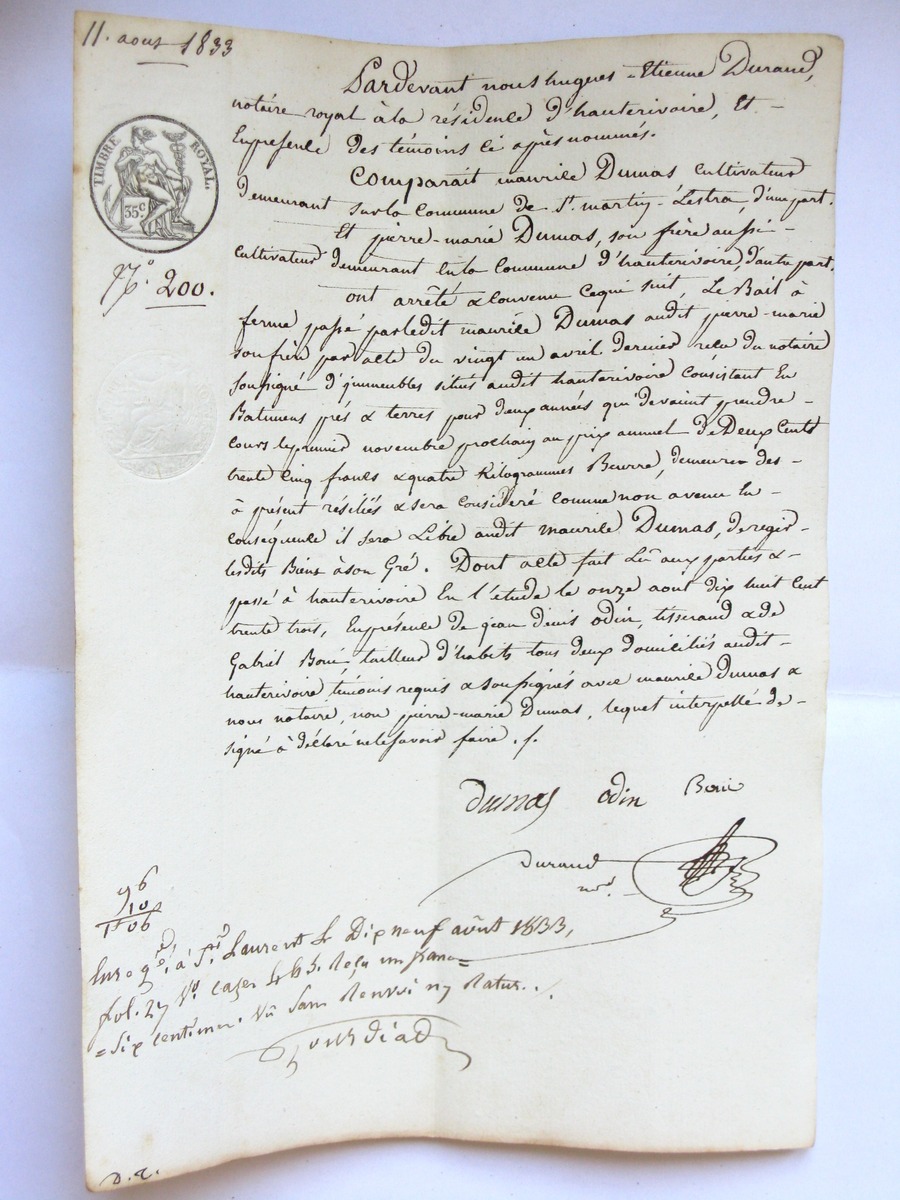 11. aout 1833
Pardevant nous hugues-Etienne Durand,
notaire royal à la résidence d'hauterivoire, Et -
En presence des témoins ci après nommés.
Comparait maurice Dumas Cultivateur
demeurant sur la Commune de St. martin-Lestra, d'une part.
Et pierre-marie Dumas, son frère aussi -
Cultivateur demeurant en la Commune d'hauterivoire, d'autre part.
ont arrêté & Convenu Ce qui suit, Le Bail à
ferme passé par ledit maurice Dumas audit pierre-marie
son frère par acte du vingt un avril dernier reçu du notaire
soussigné d'immeubles situés audit hauterivoire Consistant En
Batimens prés & terres pour deux années qui devaient prendre -
Cours le premier novembre prochain au prix annuel de Deux Cents
trente Cinq francs & quatre Kilogrammes Beurre, demeure dès -
à présent résiliés & sera Considéré Comme non avenu En -
Conséquence il sera Libre audit maurice Dumas, de regir
lesdits Biens à son Gré. Dont acte fait Lû aux parties & -
passé à hauterivoire En l'étude le onze aout dix huit Cent
trente trois, En présence de jean denis odin, tisserand & de
Gabriel Boué tailleur d'habits tous deux domiciliés audit -
hauterivoire témoins requis & soussignés avec maurice Dumas &
nous notaire, non pierre-marie Dumas, lequel interpellé de -
signé à déclaré ne le savoir faire ./.
TIMBRE ROYAL.
35c.
No. 200.
Dumas odin Boué
Durand
nre.
96
10
1 06
Enregré. à St. Laurent Le Dix neuf août 1833,
fol. 27 Vo. Cases 4 & 5. Reçu un franc =
= dix Centimes. Vû Sans Renvoi ny Rature ./.
D. Q.